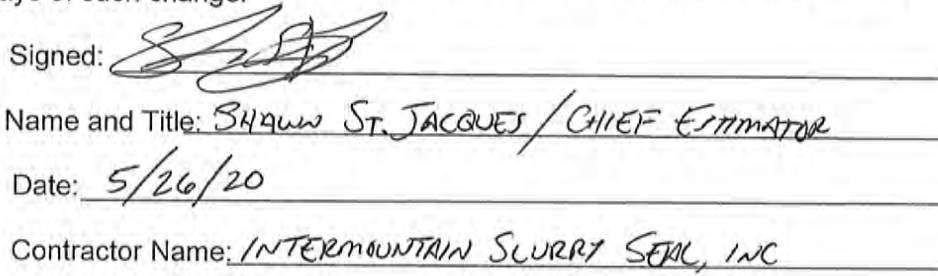 ays of such change.
Signed:
Name and Title: SHAWN ST. JACQUES / CHIEF ESTIMATOR
Date: 5/26/20
Contractor Name: INTERMOUNTAIN SLURRY SEAL, INC